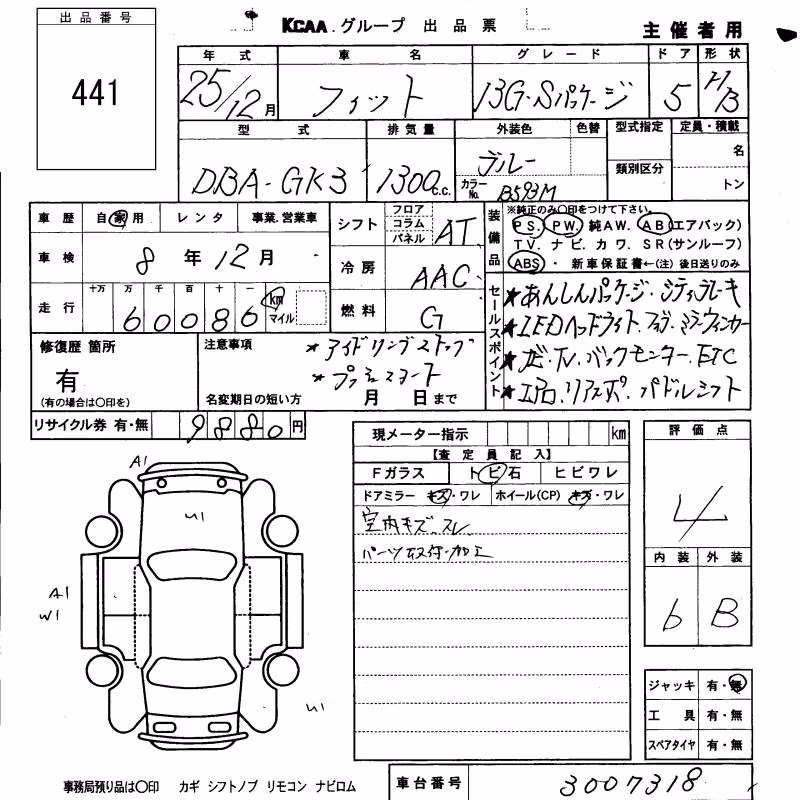 出品番号
441
KCAA.グループ 出品票
主催者用
年式 車名 グレード ドア 形状
25/12月 フィット 13G・Sパッケージ 5 H/B
型式 排気量 外装色 色替 型式指定 定員・積載
DBA-GK3 1300c.c. ブルー 名
カラーNo. B593M 類別区分 トン
車歴 自家用 レンタ 事業.営業車
車検 8年12月
走行 十万 万 千 百 十 一 km マイル
60086
シフト フロア コラム パネル AT
冷房 AAC
燃料 G
装備品
※純正のみ○印をつけて下さい。
PS. PW. 純AW. AB(エアバック)
TV. ナビ. カワ. SR(サンルーフ)
ABS ・ 新車保証書←(注)後日送りのみ
セールスポイント
★あんしんパッケージ・シティブレーキ
★LEDヘッドライト・フォグ・ミラーウィンカー
★ナビ・TV・バックモニター・ETC
★エアロ・リアスポ・パドルシフト
修復歴 箇所
有
(有の場合は○印を)
注意事項 ★アイドリングストップ
★プッシュスタート
名変期日の短い方 月 日まで
リサイクル券 有・無 9880円
現メーター指示 km
【査定員記入】
Fガラス トビ石 ヒビワレ
ドアミラー キズ・ワレ ホイール(CP) キズ・ワレ
室内キズ、スレ
パーツ取付・加工
評価点
4
内装 外装
6 B
ジャッキ 有・無
工具 有・無
スペアタイヤ 有・無
A1
U1
A1
W1
U1
事務局預り品は○印 カギ シフトノブ リモコン ナビロム
車台番号 3007318